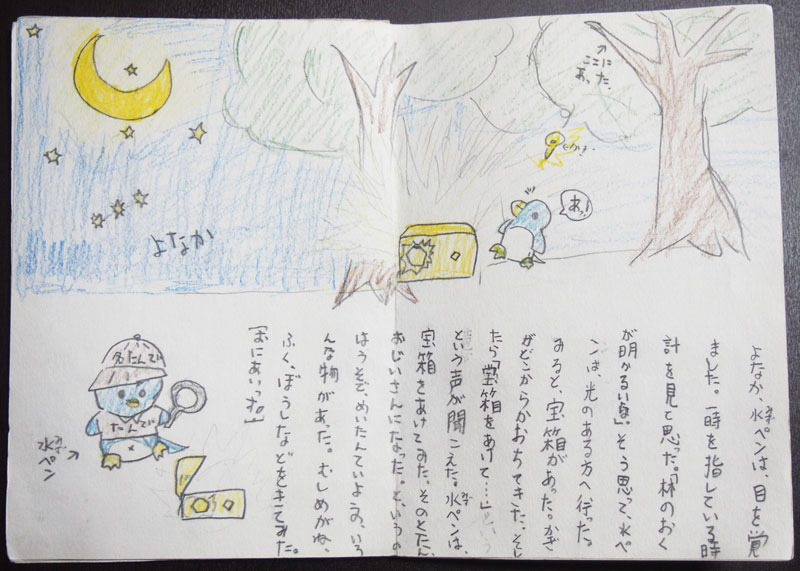 ここに
あった
とかっ
あっ!
よなか
よなか、水ペンは、目を覚
ました。一時を指している時
計を見て思った。「林のおく
が明かるい。」そう思って、水ペ
ンは、光のある方へ行った。
みると、宝箱があった。かぎ
がどこからかおちてきた。そし
たら「宝箱をあけて…」
という声が聞こえた。水ペンは、
宝箱をあけてみた。そのとたん、
おじいさんになった。と、いうの
はうそで、めいたんていようの、いろ
んな物があった。むしめがね、
ふく、ぼうしなどをきてみた。
「おにあいっす。」
名たんて
たんて
水ペン